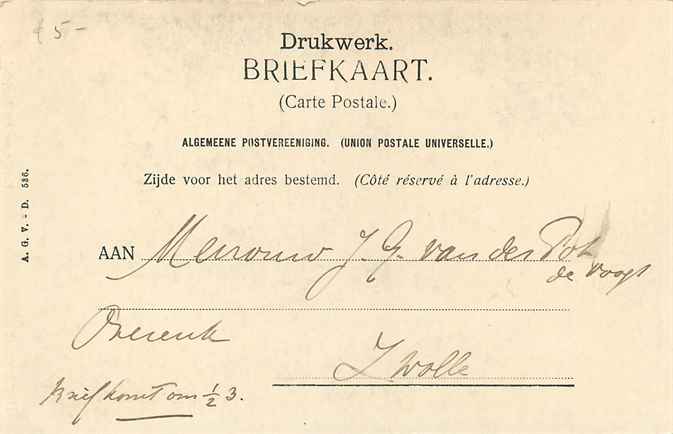 f 5-
Drukwerk.
BRIEFKAART.
(Carte Postale.)
ALGEMEENE POSTVEREENIGING. (UNION POSTALE UNIVERSELLE.)
Zijde voor het adres bestemd. (Côté réservé à l'adresse.)
A. G. V. - D. 536.
AAN Mevrouw J. G. van der Pot
de Voogt
Zwolle
Brief komt om ½ 3.